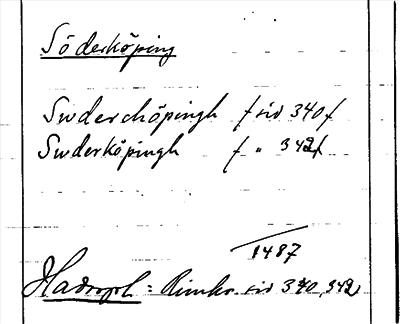 Söderköping
Suderchöpingh / sid 340 /
Suderköpingh / " 342 /
1487
Hadorph : Rimkr. sid 340, 342